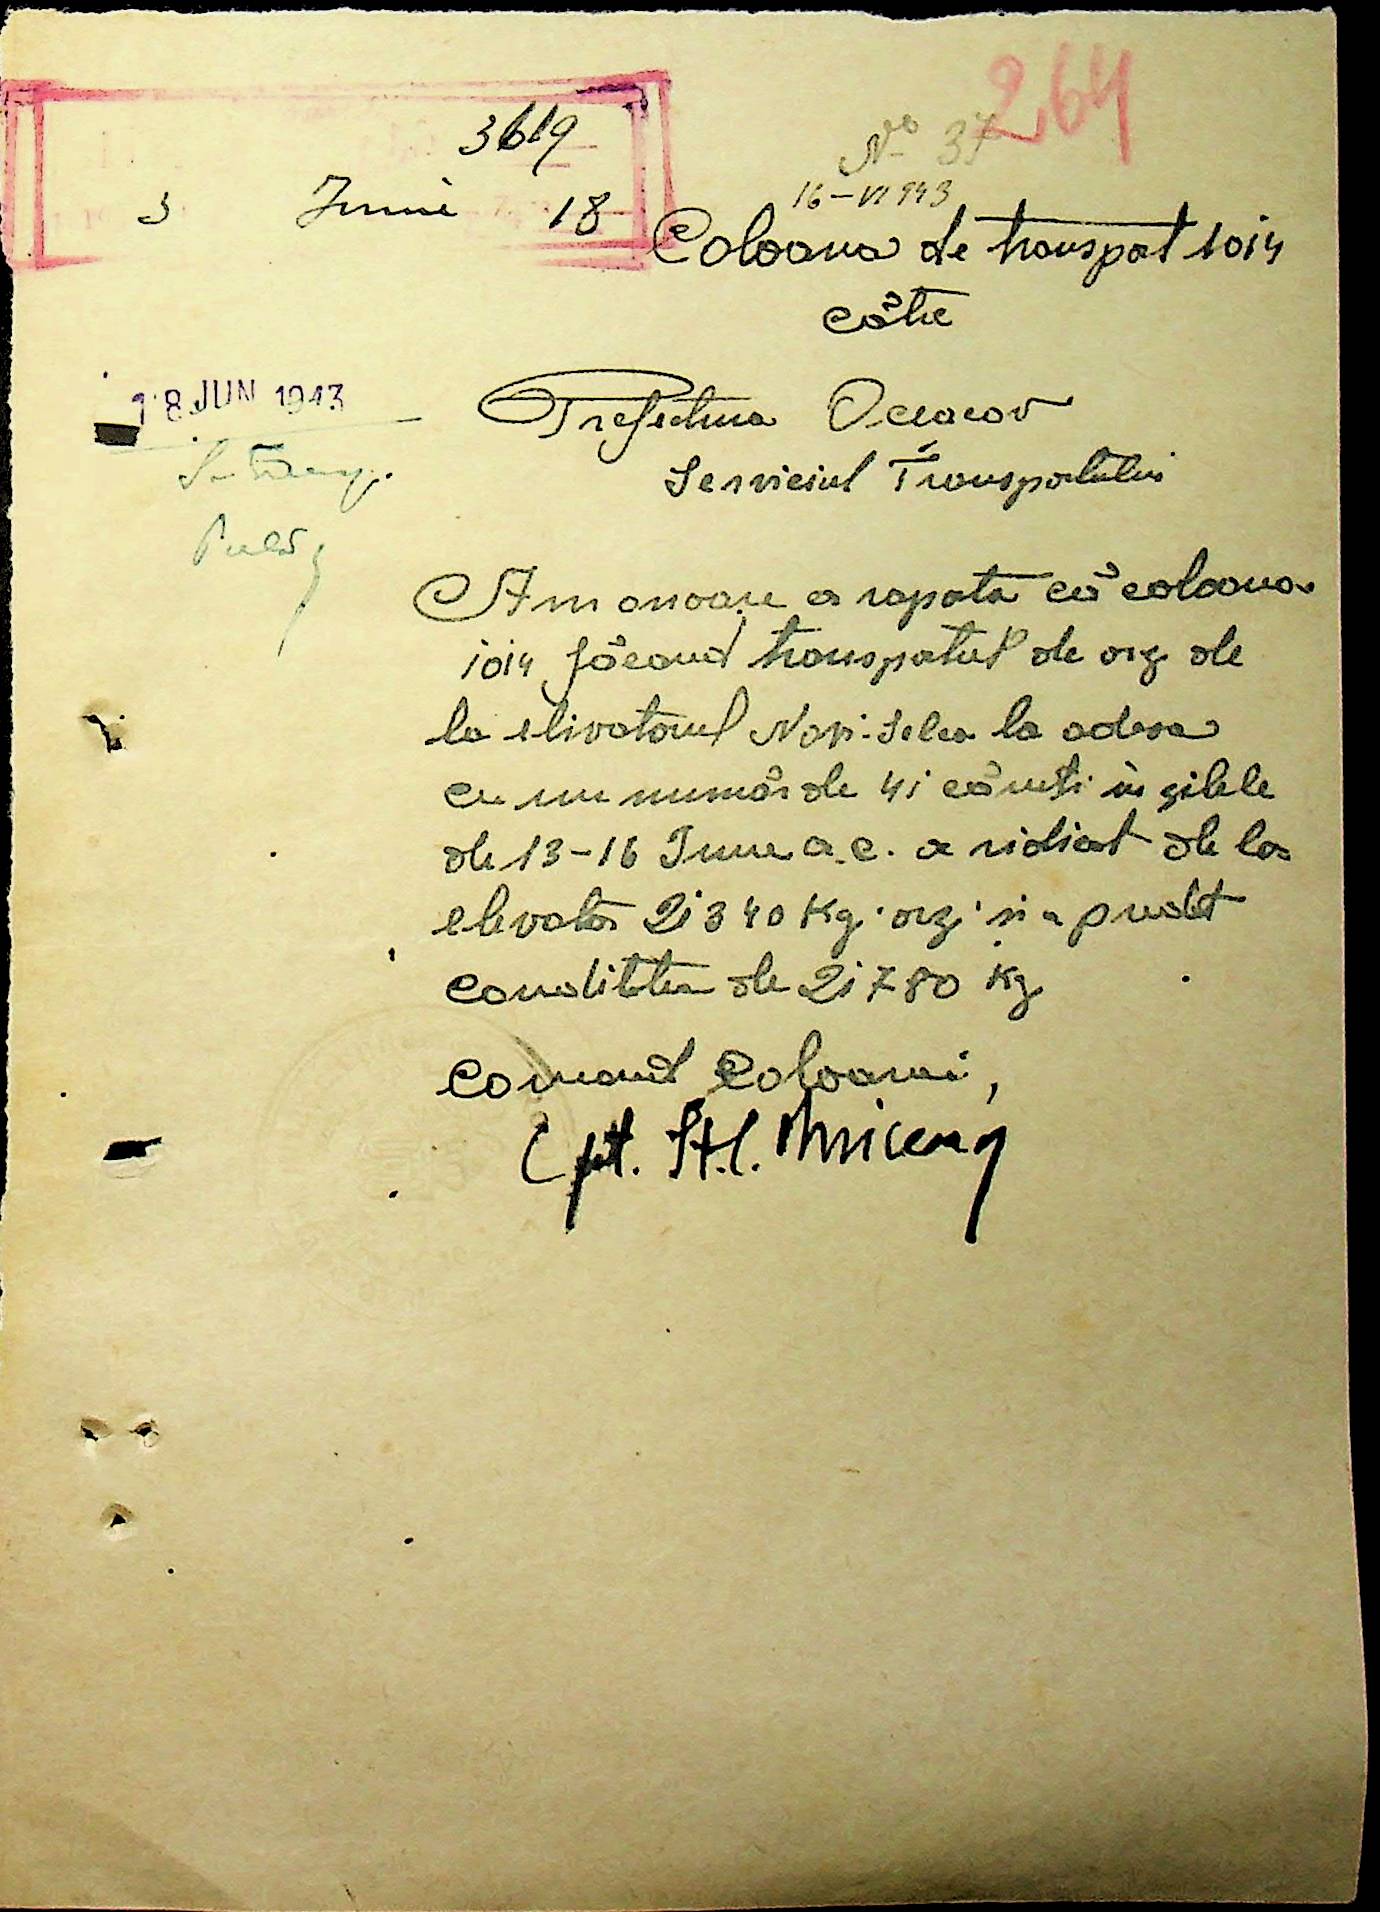 264
3619
3 Iunie 18
No 37
16-VI 943
Coloana de transport 1014
către
18 JUN 1943
Prefectura Oceacov
Serviciul Transportului
Am onoare a raporta că coloana
1014 făcând transportul de orz de
la elivatorul Novi-Selca la adesa
cu un număr de 41 căruți în zilele
de 13-16 Iunie a.c. a ridicat de la
elivator 21340 Kg. orz și a predat
canditatea de 21780 Kg
Comand Coloanei,
Cpt. St. C.